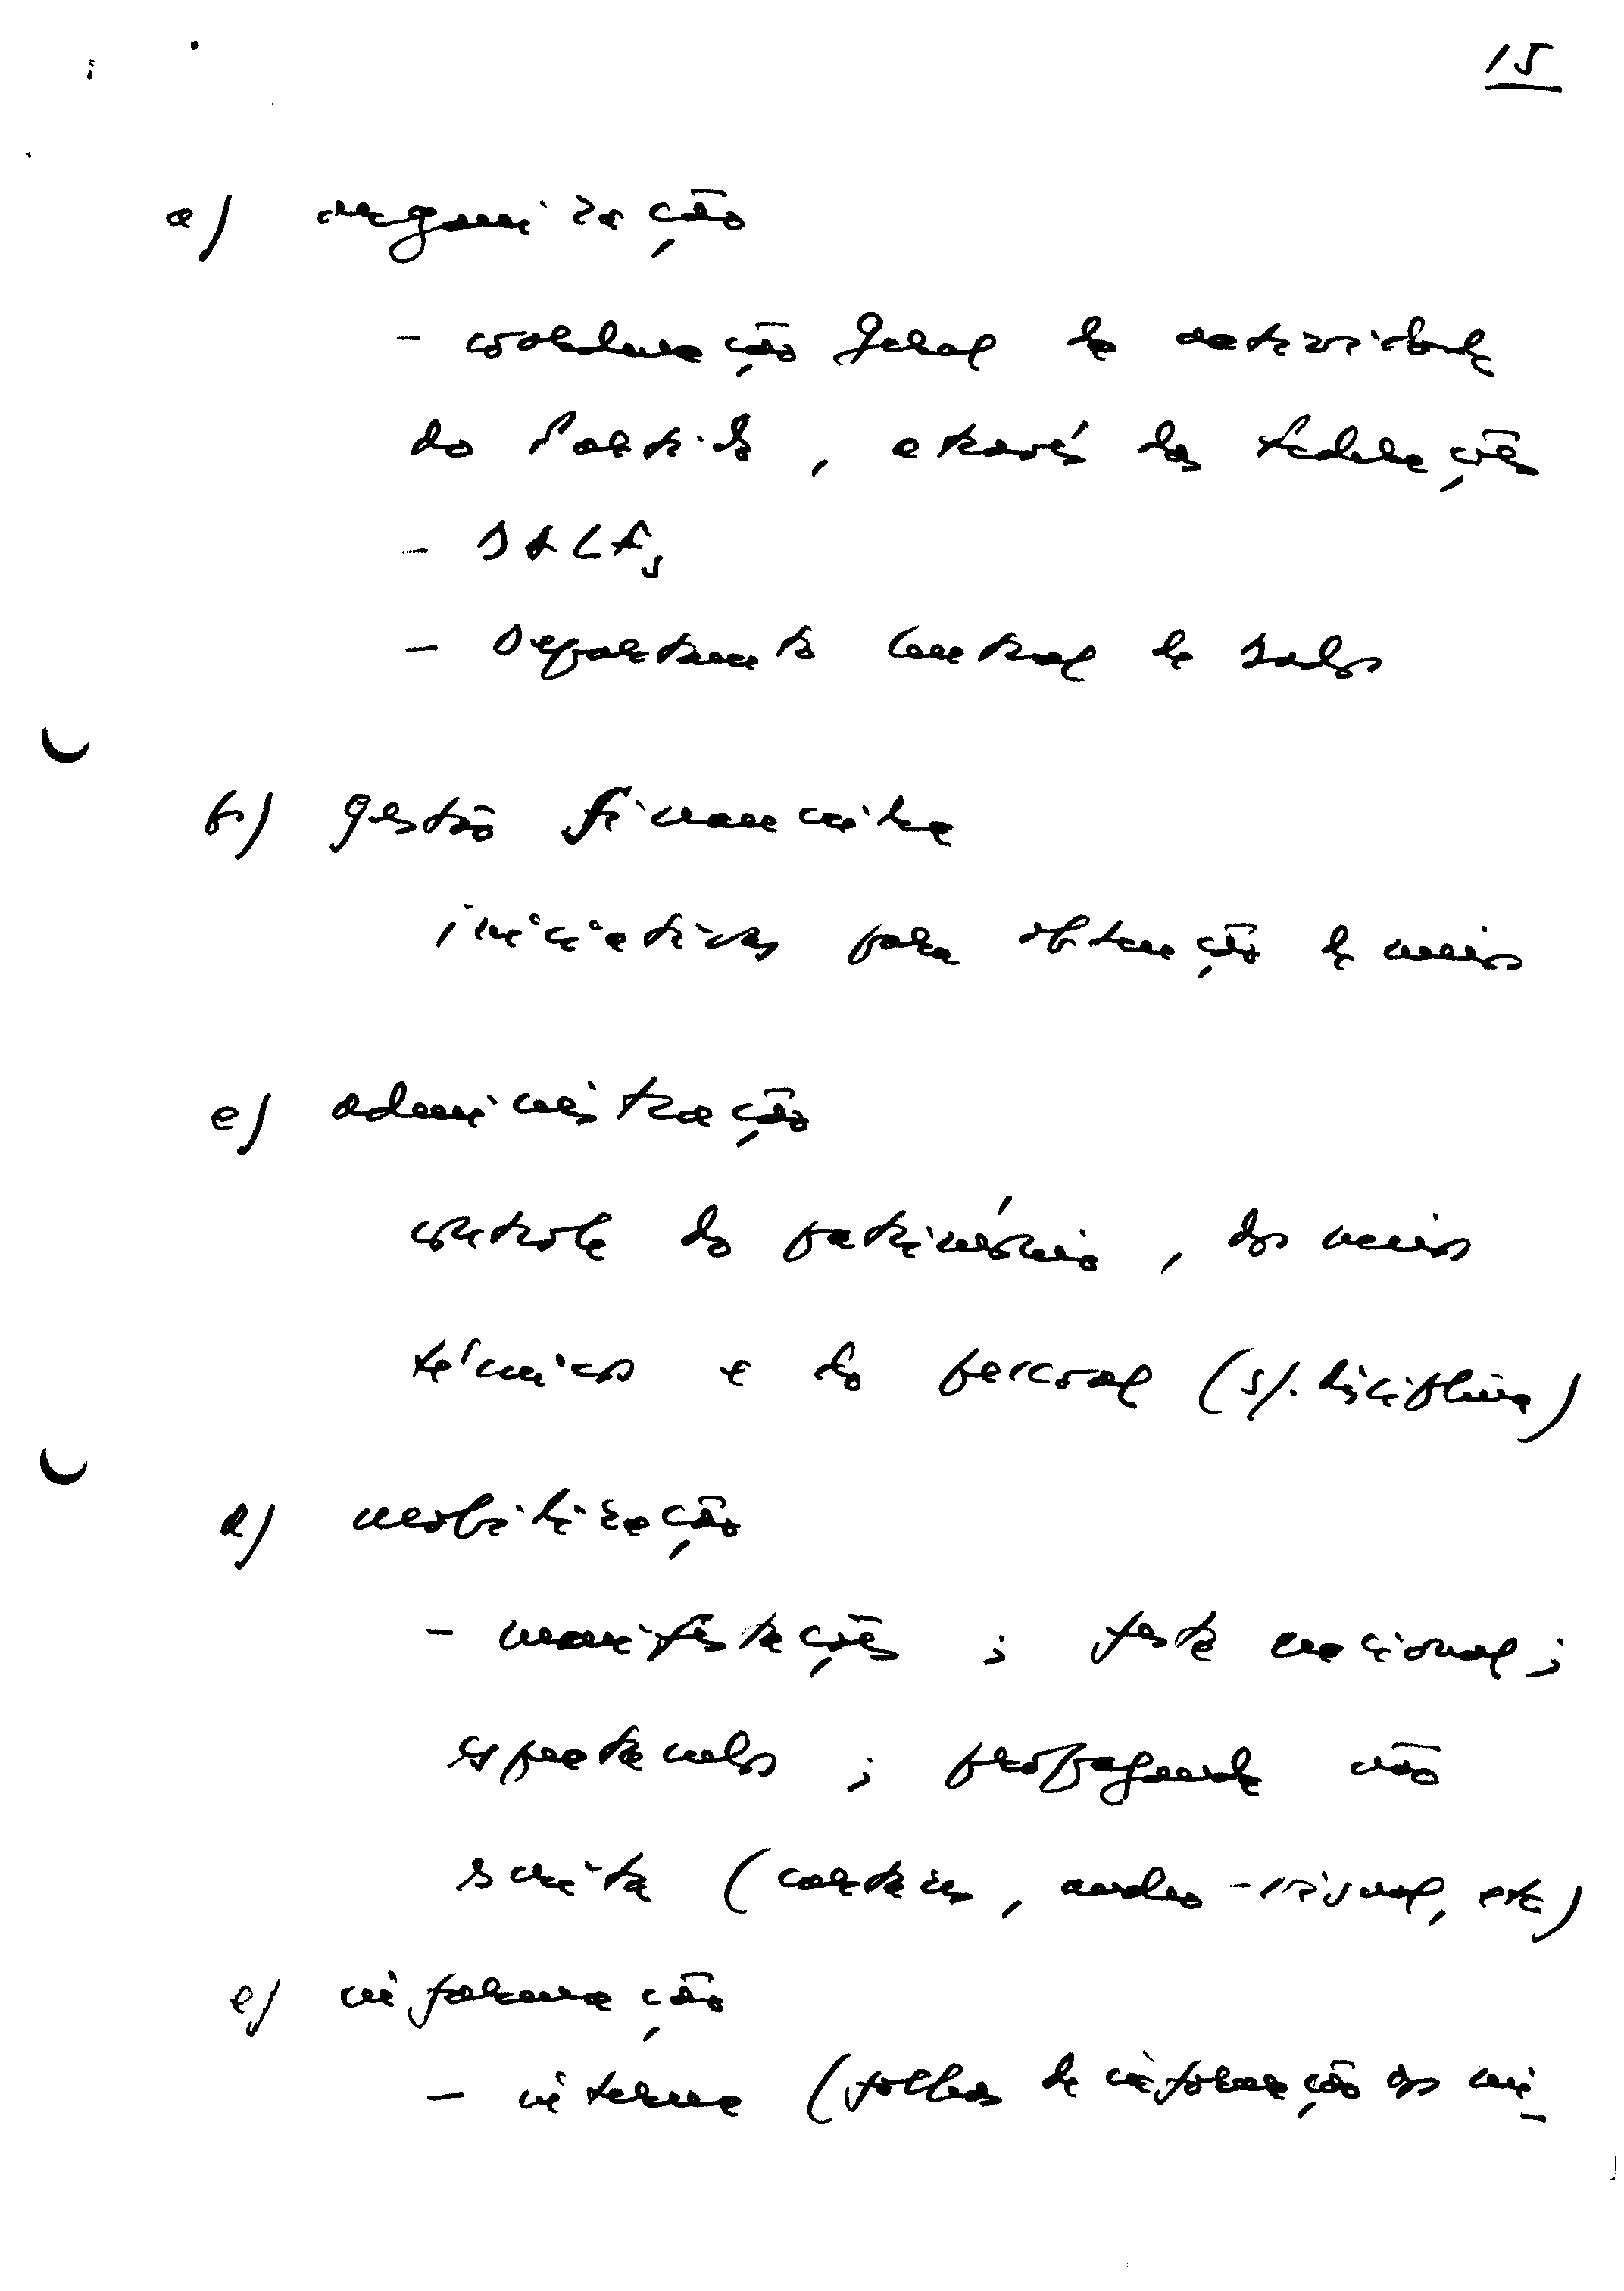 15
a) organização
- coordenação geral da actividade
do Partido, através das federações
- DALFs
- Departamento Central de Dados
b) gestão financeira
iniciativas para obtenção de meios
c) administração
controle do património, dos meios
técnicos e do pessoal (s/. disciplina)
d) mobilização
- manifestações ; festa nacional ;
espectáculos ; propaganda não
escrita (cartazes, audio-visual, etc)
e) informação
- interna (folhas de informação aos mi-